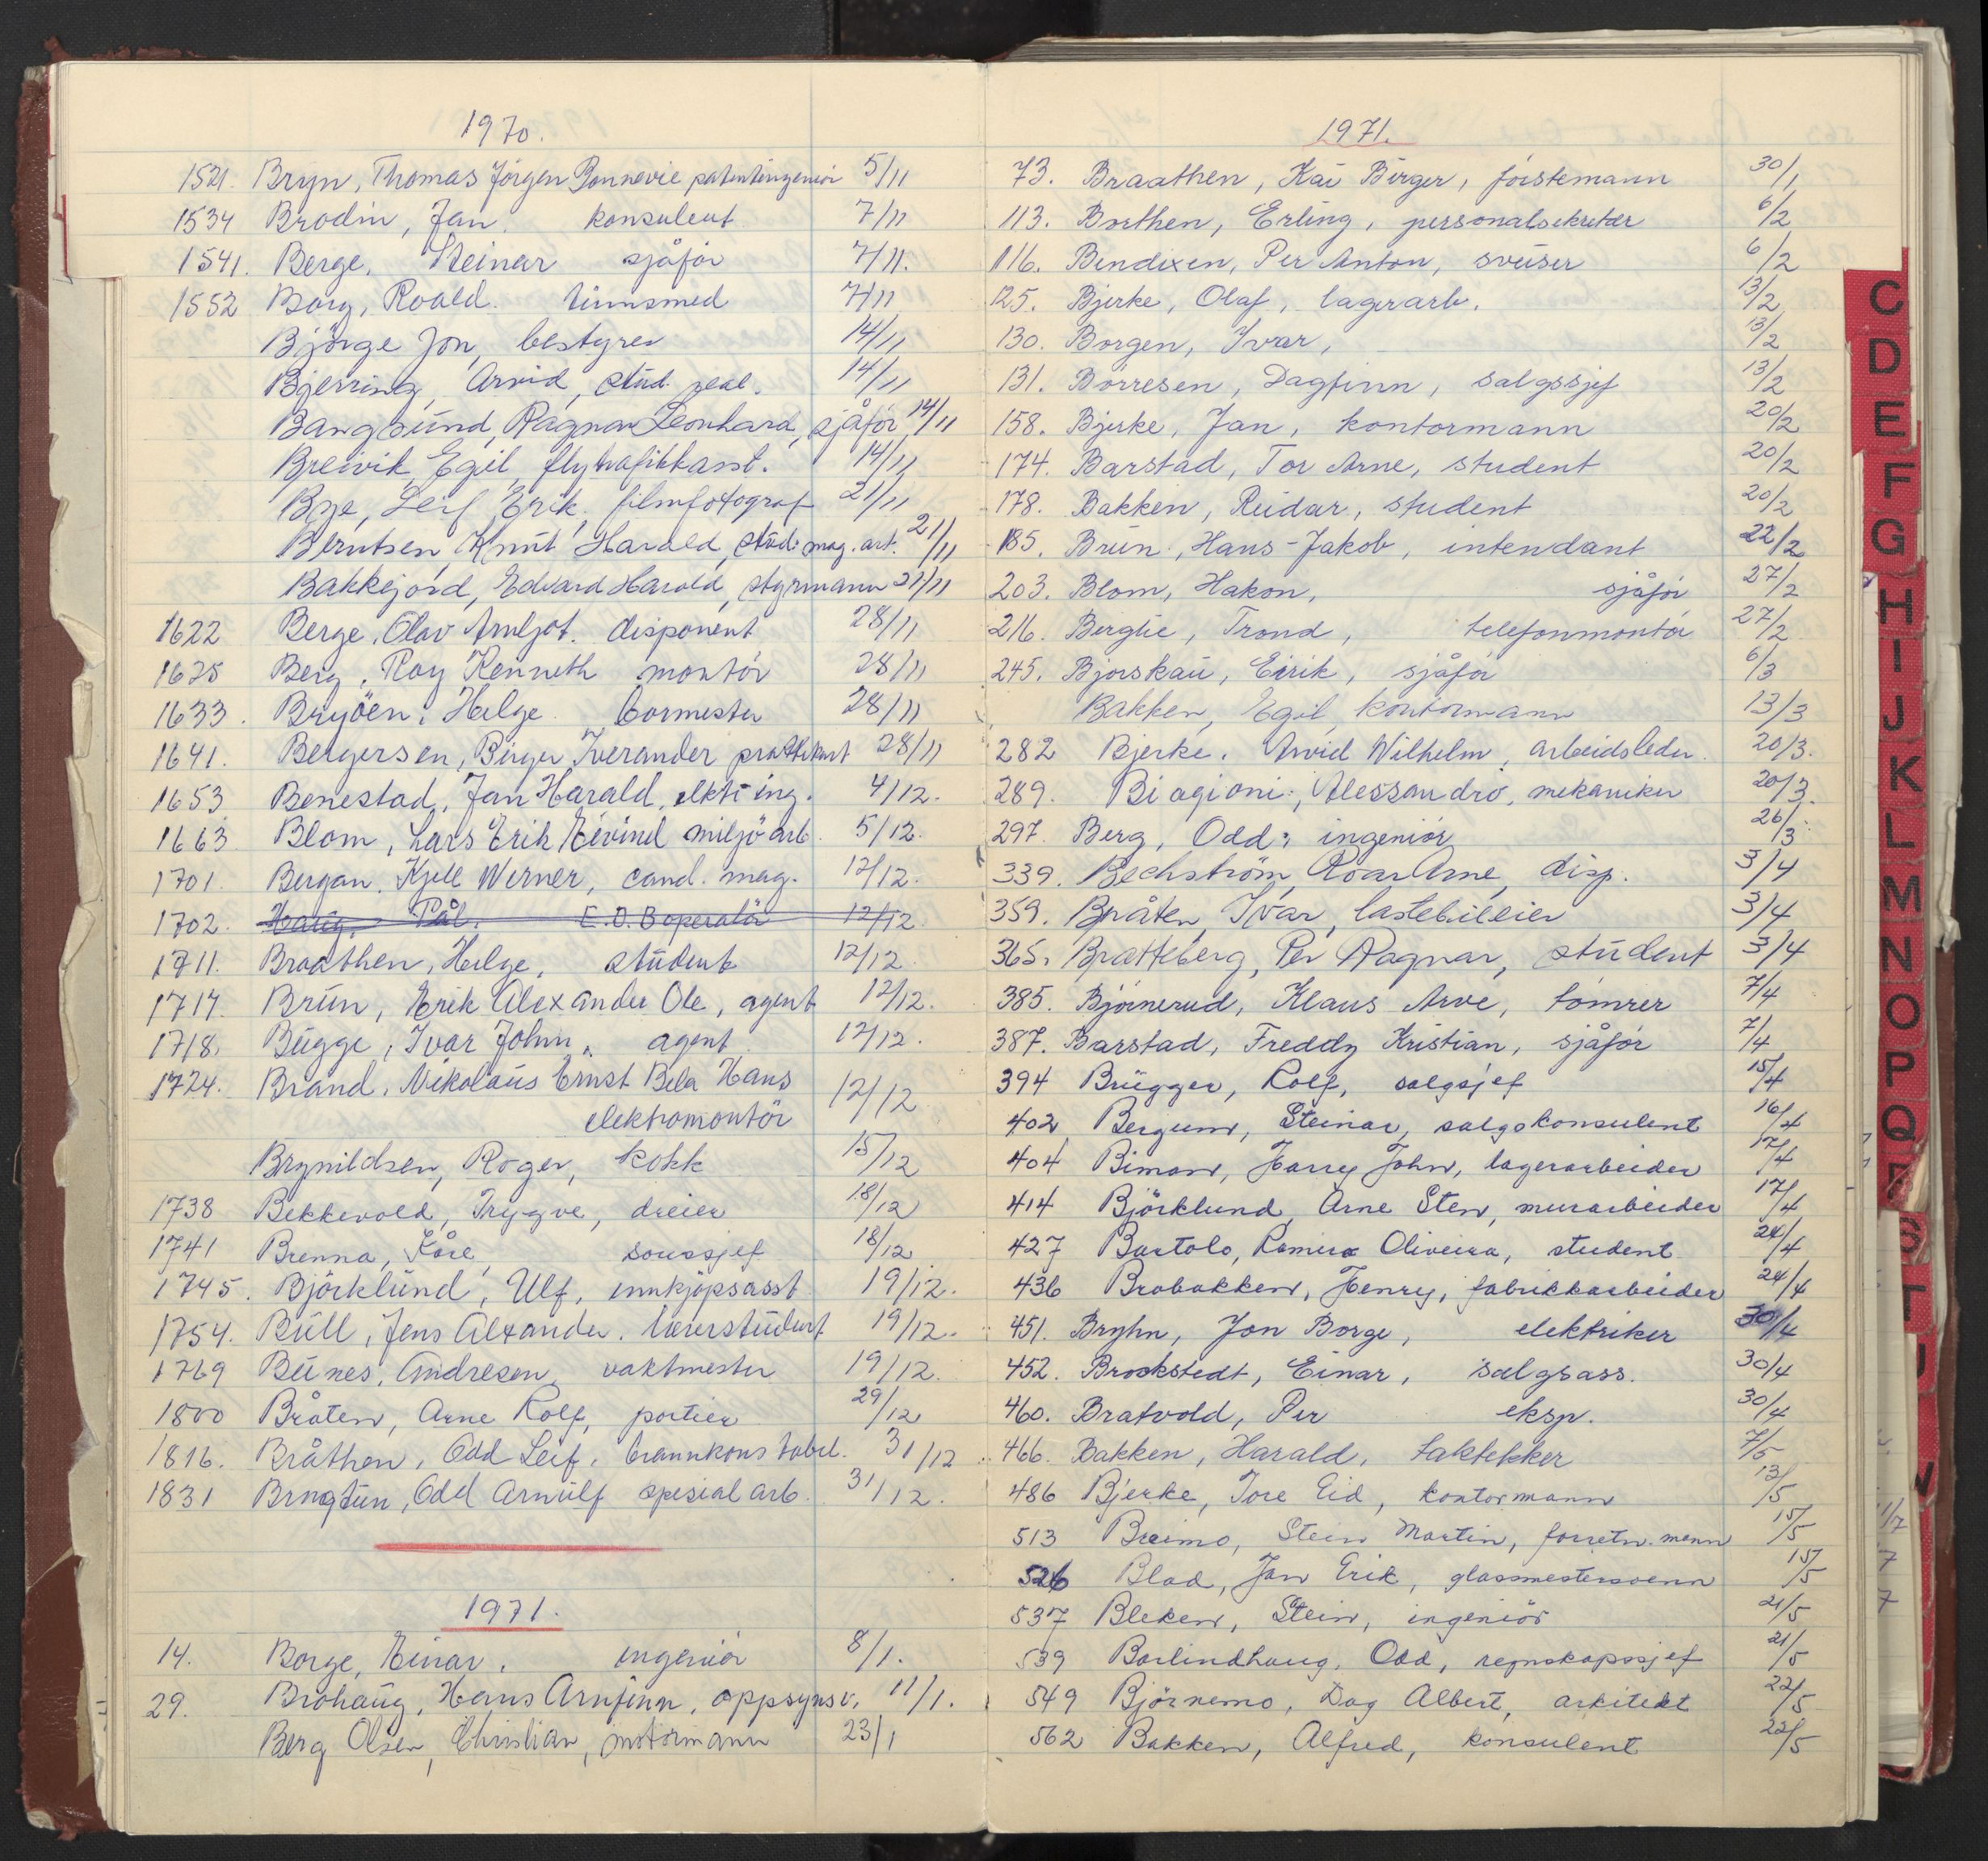 1970.
1521. Bryn, Thomas Jörgen Bonnevie patentingeniör 5/11
1534 Brodin, Jan. konsulent 7/11
1541. Berge, Steinar sjåför 7/11.
1552 Borg, Roald. tinnsmed 7/11
Björge Jon, bestyrer 14/11
Bjerring, Arvid, stud. real. 14/11
Bangsund, Ragnar Leonhard, sjåför 14/11
Breivik, Egil, flytrafikkasst. 14/11
Bye, Leif Erik, filmfotograf 21/11
Berntsen, Knut Harald, stud. mag. art. 21/11
Bakkejord, Edvard Harald, styrmann 21/11
1622 Berge, Olav Arnljot. disponent 28/11
1625 Berg, Roy Kenneth montör 28/11
1633. Bryöen, Helge. bormester 28/11
1641. Bergersen, Birger Iverander praktikant 28/11
1653 Benestad, Jan Harald, ekt. ing. 4/12.
1663 Blom, Lars Erik Eivind miljöarb. 5/12.
1701. Bergan, Kjell Werner, cand. mag. 12/12.
1702. Haug, Pål. E.D.B operatör 12/12.
1711. Braathen, Helge, student 12/12.
1717. Brun, Erik Alexander Ole, agent 12/12.
1718. Bugge, Ivar Johm, agent 12/12.
1724. Brand, Nikolaus Ernst Bela Hans 12/12
elektromontör
Brynildsen, Roger, kokk 15/12
1738 Bekkevold, Trygve, dreier 18/12
1741 Brenna, Kåre, soussjef 18/12
1745. Björklund, Ulf, innkjöpsasst. 19/12.
1754. Bull, Jens Alexander. lærerstudent 19/12.
1769 Bunes, Andresen, vaktmester 19/12.
1800 Bråten, Arne Rolf, portier 29/12
1816. Bråthen, Odd Leif, brannkonstabel. 31/12
1831 Brngtun, Odd Arnulf spesialarb. 31/12.
1971.
14. Borge, Einar. ingeniör 8/1.
29. Brohaug, Hans Arnfinn, oppsynsv. 11/1.
Berg Olsen, Christian, motormann 23/1
1971.
73. Braathen, Kai Birger, forstemann 30/1
113. Borthen, Erling, personalsekretær 6/2
116. Bendixen, Per Anton, sveiser 6/2
125. Bjerke, Olaf, lagerarb. 13/2
130. Borgen, Ivar, 13/2
131. Börresen, Dagfinn, salgssjef 13/2
158. Bjerke, Jan, kontormann 20/2
174. Barstad, Tor Arne, student 20/2
178. Bakken, Reidar, student 20/2
185. Brun, Hans-Jakob, intendant 22/2
203. Blom, Hakon, sjåför 27/2
216. Berglie, Trond, telefonmontör 27/2
245. Bjorskau, Eirik, sjåför 6/3
Bakken, Egil, kontormann 13/3
282 Bjerke, Arvid Wilhelm, arbeidsleder. 20/3.
289. Biagioni, Alessandro, mekaniker 20/3.
297. Berg, Odd, ingeniör 26/3
339. Bechström, Roar Arne, disp. 3/4
359. Bråten, Ivar, lastebileier 3/4
365. Bratteberg, Per Ragnar, student 3/4
385. Björnerud, Klaus Arve, tömrer 7/4
387. Barstad, Freddy Kristian, sjåför 7/4
394 Brügger, Rolf, salgsjef 15/4
402 Bergum, Steinar, salgskonsulent 16/4
404 Biman, Harry John, lagerarbeider 17/4
414 Björklund, Arne Sten, murarbeider 17/4
427 Bartolo, Ramiro Oliveira, student 24/4
436 Brobakken, Henry, fabrikkarbeider 24/4
451. Bryhn, Jon Borge, elektriker 30/4
452. Brockstedt, Einar, salgsass. 30/4
460. Bratvold, Per eksp. 30/4
466. Bakken, Harald, taktekker 7/5
486 Bjerke, Tore Eid, kontormann 13/5
513 Breimo, Stein Martin, forretn.mann 15/5
526 Blad, Jan Erik, glassmestersvenn 15/5
537 Bleken, Stein, ingeniör 21/5
539 Barlindhaug, Odd, regnskapssjef 21/5
549 Björnemo, Dag Albert, arkitekt 22/5
562 Bakken, Alfred, konsulent 22/5
C
D
E
F
G
H
I
J
K
L
M
N
O
P
Q
R
S
T